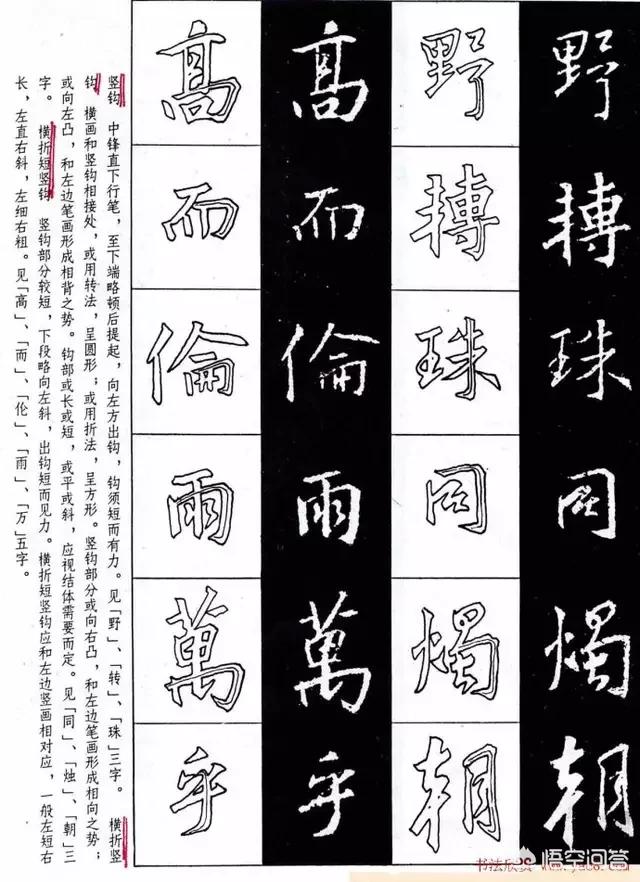 野轉珠同燭朝
野轉珠同燭朝
高而倫雨萬乎
高而倫雨萬乎
竖钩　中锋直下行笔，至下端略顿后提起，向左方出钩，钩须短而有力。见「野」、「转」、「珠」三字。　横折竖
钩　横画和竖钩相接处，或用转法，呈圆形；或用折法，呈方形。竖钩部分或向右凸，和左边笔画形成相向之势；
或向左凸，和左边笔画形成相背之势。钩部或长或短，或平或斜，应视结体需要而定。见「同」、「烛」、「朝」三
字。　横折短竖钩　竖钩部分较短，下段略向左斜，出钩短而见力。横折短竖钩应和左边竖画相对应，一般左短右
长，左直右斜，左细右粗。见「高」、「而」、「伦」、「雨」、「万」五字。
书法欣赏
悟空问答